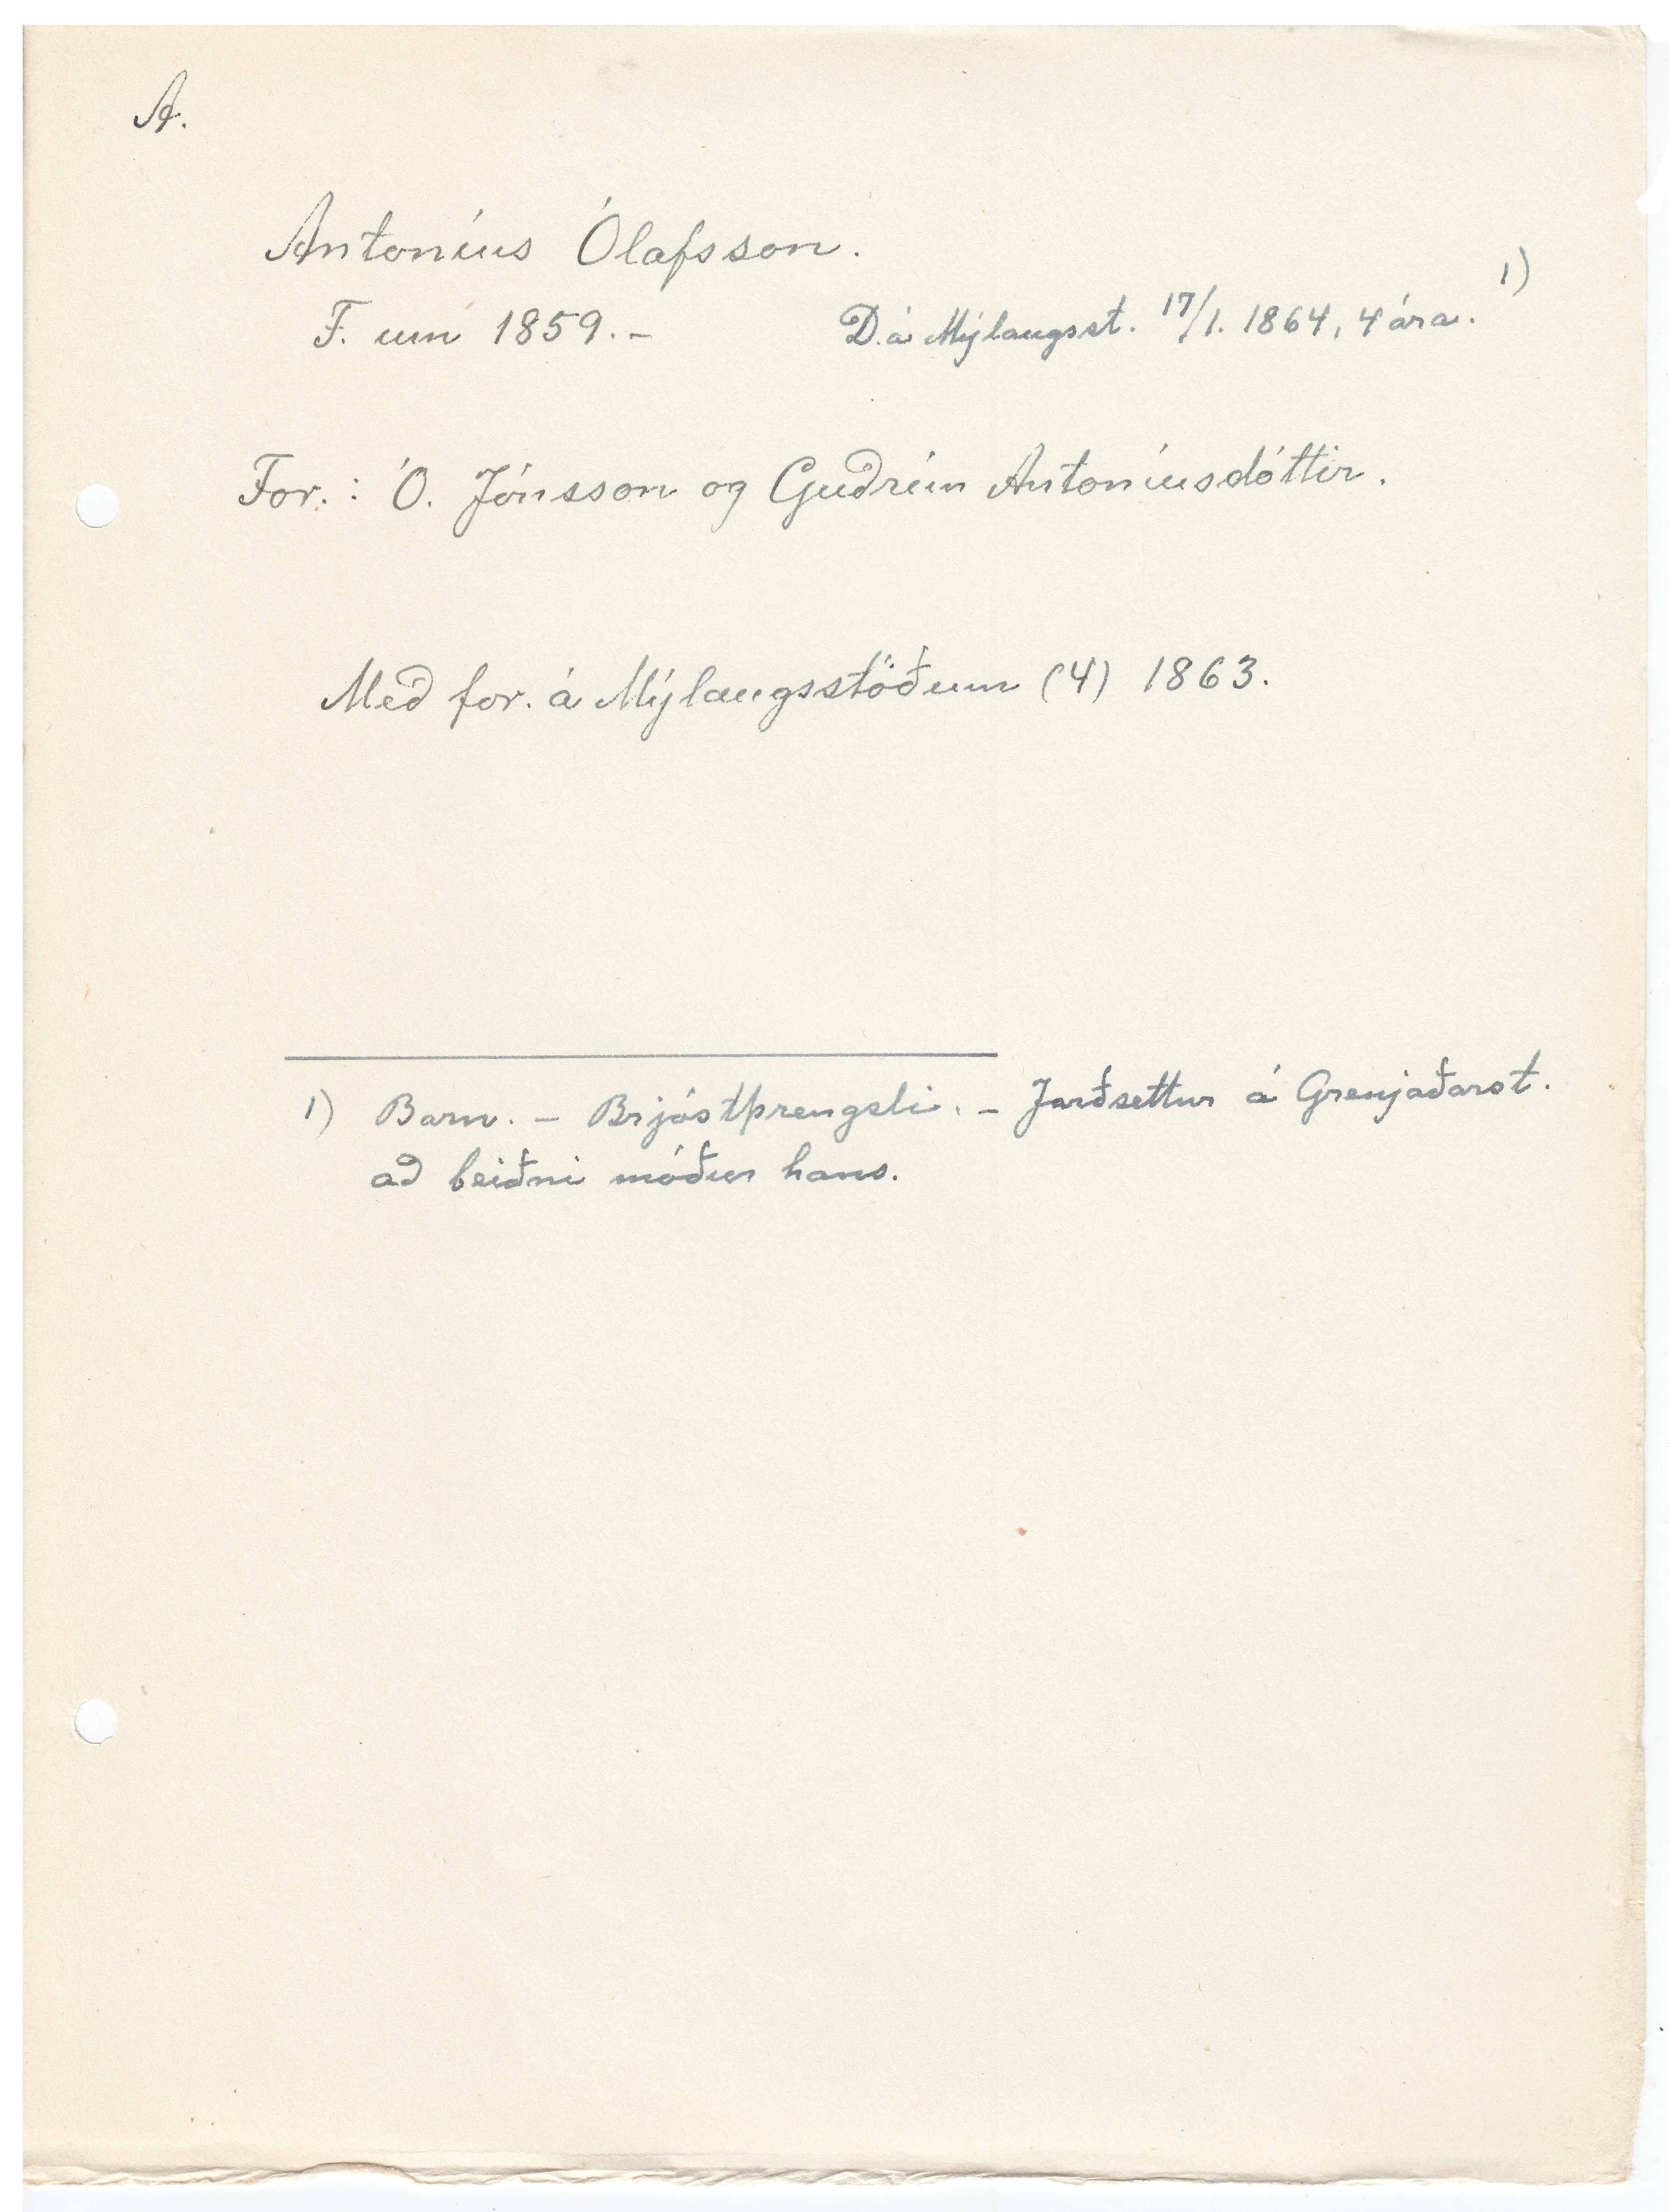 A.
Antoníus Ólafsson.
F. um 1859.- D. á Mýlaugsst. 17/1. 1864, 4 ára. 1)
For.: Ó. Jónsson og Guðrún Antoníusdóttir.
Með for. á Mýlaugsstöðum (4) 1863.
1) Barn. - Brjóstþrengsli. - Jarðsettur á Grenjaðarst.
að beiðni móður hans.